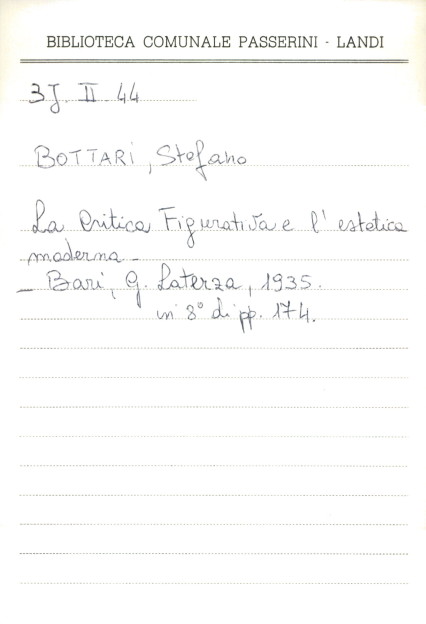 BIBLIOTECA COMUNALE PASSERINI - LANDI
3J. II. 44
BOTTARI, Stefano
La Critica Figurativa e l' estetica
moderna -
- Bari, G. Laterza, 1935.
in 8° di pp. 174.